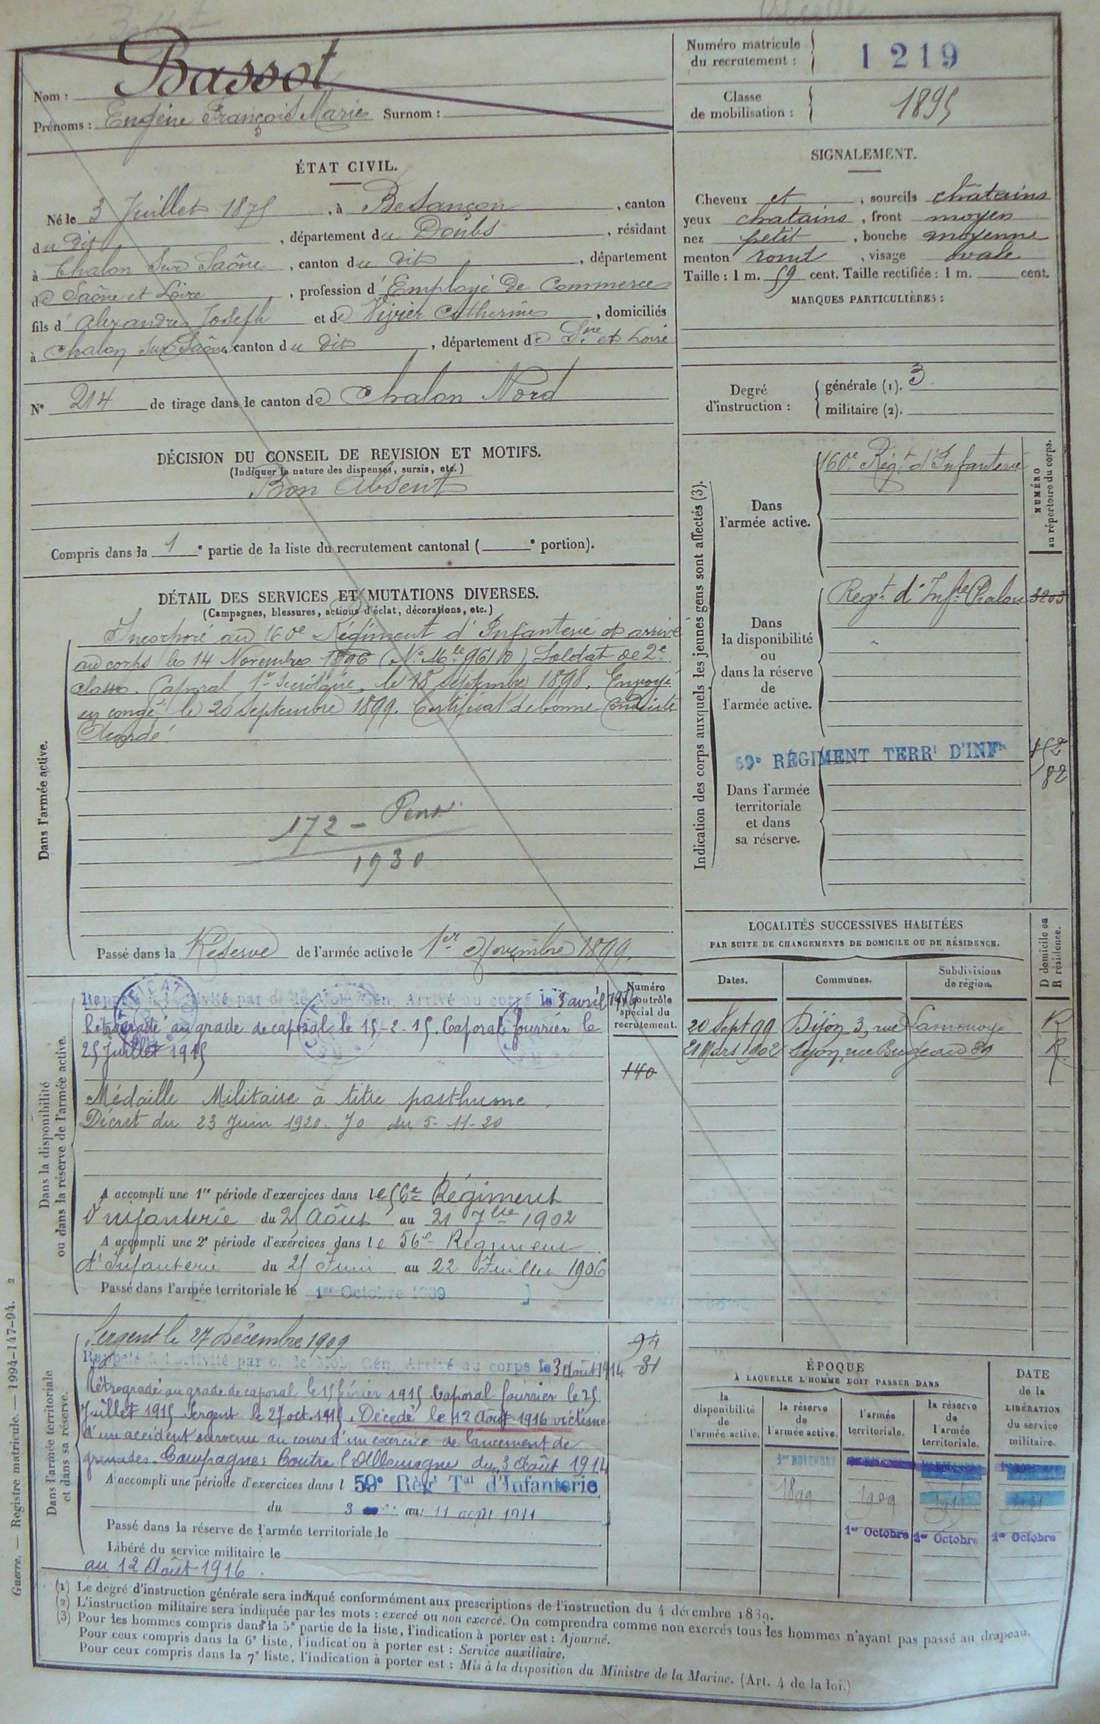 Nom : Bassot
Prénoms : Eugène François Marie Surnom :
Numéro matricule du recrutement : 1219
Classe de mobilisation : 1895
ÉTAT CIVIL.
Né le 3 Juillet 1875, à Besançon, canton
du dit, département du Doubs, résidant
à Chalon sur Saône, canton du dit, département
de Saône et Loire, profession d'Employé de Commerce
fils d'Alexandre Joseph et de Vivier Catherine, domiciliés
à Chalon sur Saône canton du dit, département de Sne et Loire
N° 214 de tirage dans le canton de Chalon Nord
SIGNALEMENT.
Cheveux et, sourcils châtains
yeux châtains, front moyen
nez petit, bouche moyenne
menton rond, visage ovale
Taille : 1 m. 59 cent. Taille rectifiée : 1 m. cent.
MARQUES PARTICULIÈRES :
Degré d'instruction : générale (1). 3
militaire (2).
DÉCISION DU CONSEIL DE REVISION ET MOTIFS.
(Indiquer la nature des dispenses, sursis, etc.)
Bon Absent
Compris dans la 1e partie de la liste du recrutement cantonal ( e portion).
DÉTAIL DES SERVICES ET MUTATIONS DIVERSES.
(Campagnes, blessures, actions d'éclat, décorations, etc.)
Dans l'armée active.
Incorporé au 160e Régiment d'Infanterie et arrivé
au corps le 14 Novembre 1896 (N° Mle 9610) Soldat de 2e
classe. Caporal le 18 septembre 1898. Envoyé
en congé le 20 septembre 1899. Certificat de bonne Conduite
Accordé.
172 - Pens
1930
Passé dans la Réserve de l'armée active le 1er Novembre 1899.
Indication des corps auxquels les jeunes gens sont affectés (3).
NUMÉRO au répertoire du corps.
Dans l'armée active.
160e Régt d'Infanterie
Dans la disponibilité ou dans la réserve de l'armée active.
Regt d'Infie Chalon
59e RÉGIMENT TERRl D'INFie
182
Dans l'armée territoriale et dans sa réserve.
LOCALITÉS SUCCESSIVES HABITÉES
PAR SUITE DE CHANGEMENTS DE DOMICILE OU DE RÉSIDENCE.
Dates. Communes. Subdivisions de région. D domicile ou R résidence.
20 Sept 99 Dijon 3, rue Lamonoye R
21 Mars 1902 Lyon, rue Bugeaud 89 R
Dans la disponibilité ou dans la réserve de l'armée active.
Numéro au contrôle spécial du recrutement.
140
Rappelé à l'activité par de Mob. Gén. Arrivé au corps le 3 avril 1914
Rétrogradé au grade de caporal le 15-2-15. Caporal fourrier le
25 Juillet 1915
Médaille Militaire à titre posthume.
Décret du 23 Juin 1920. Jo du 5-11-20
A accompli une 1re période d'exercices dans le 56e Régiment
d'infanterie du 25 Août au 21 7bre 1902
A accompli une 2e période d'exercices dans le 56e Régiment
d'Infanterie du 25 Juin au 22 Juillet 1906
Passé dans l'armée territoriale le 1er Octobre 1909
Dans l'armée territoriale et dans sa réserve.
Sergent le 27 Décembre 1909
94
31
Rappelé à l'activité par o. de Mob. Gén. Arrivé au corps le 3 Août 1914
Rétrogradé au grade de caporal le 15 février 1915 Caporal fourrier le 25
Juillet 1915 Sergent le 27 oct. 1915. Décédé le 12 Août 1916 victime
d'un accident survenu au cours d'un exercice de lancement de
grenades. Campagnes : Contre l'Allemagne du 3 Août 1914
A accompli une période d'exercices dans l 59e Régt Tal d'Infanterie
du 3 au 11 août 1911
Passé dans la réserve de l'armée territoriale le
Libéré du service militaire le
au 12 Août 1916.
ÉPOQUE
À LAQUELLE L'HOMME DOIT PASSER DANS
la disponibilité de l'armée active. la réserve de l'armée active. l'armée territoriale. la réserve de l'armée territoriale. DATE de la LIBÉRATION du service militaire.
1er NOVEMBRE
1899 1909
1er Octobre 1er Octobre 1er Octobre
(1) Le degré d'instruction générale sera indiqué conformément aux prescriptions de l'instruction du 4 décembre 1889.
(2) L'instruction militaire sera indiquée par les mots : exercé ou non exercé. On comprendra comme non exercés tous les hommes n'ayant pas passé au drapeau.
(3) Pour les hommes compris dans la 5e partie de la liste, l'indication à porter est : Ajourné.
Pour ceux compris dans la 6e liste, l'indication à porter est : Service auxiliaire.
Pour ceux compris dans la 7e liste, l'indication à porter est : Mis à la disposition du Ministre de la Marine. (Art. 4 de la loi.)
Guerre. — Registre matricule. — 1994-147-94. 2